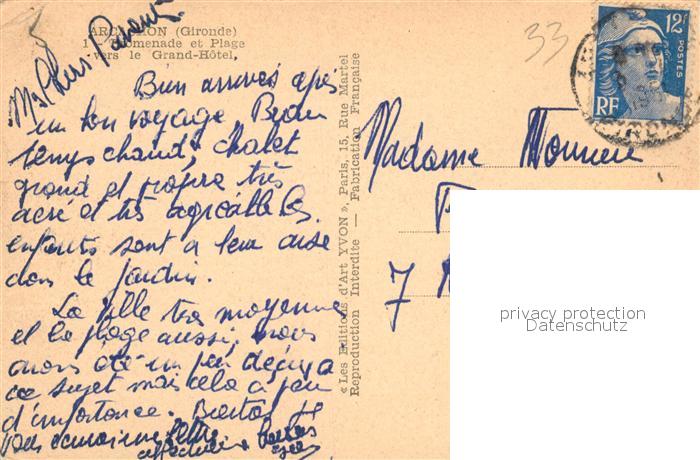 ARCACHON (Gironde)
1 - Promenade et Plage
vers le Grand-Hôtel,
Mes chers Parents
Bien arrivés après
un bon voyage. Beau
temps chaud, chalet
grand et propre très
aéré et très agréable les
enfants sont à leur aise
dans le jardin.
La ville très moyenne
et la plage aussi, nous
avons été un peu déçus à
ce sujet mais cela a peu
d'importance. Bientôt
lettre
affectueux
« Les Editions d'Art YVON », Paris, 15, Rue Martel
Reproduction Interdite — Fabrication Française
33
12F
POSTES
RF
Madame
7
privacy protection
Datenschutz